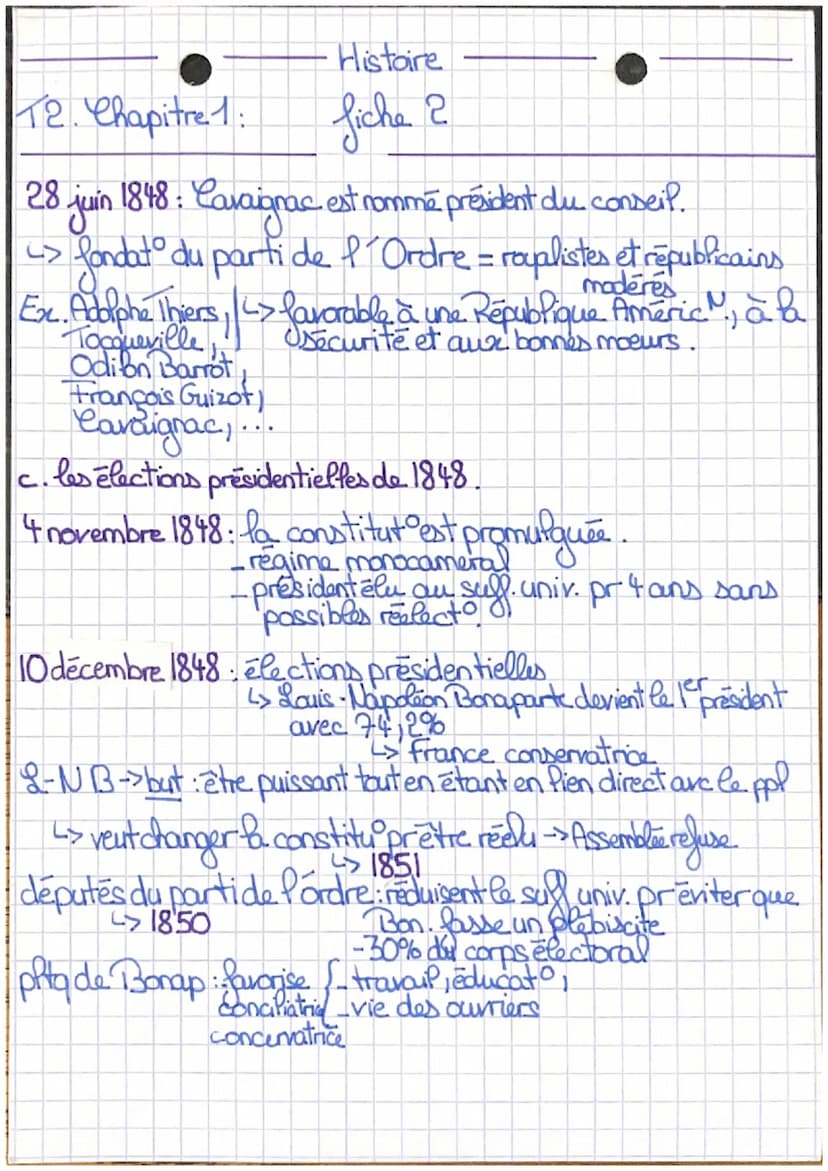 Histoire
T2. Chapitre 1: fiche 2
28 juin 1848 : Cavaignac est nommé président du conseil.
↳ fondat° du parti de l'Ordre = royalistes et républicains
modérés
Ex. Adolphe Thiers, ↳ favorable à une République Améric^N., à la
Tocqueville, sécurité et aux bonnes moeurs.
Odilon Barrot,
François Guizot,
Cavaignac, ...
c. les élections présidentielles de 1848.
4 novembre 1848 : la constitut° est promulguée.
- régime monocameral
- président élu au suff. univ. pr 4 ans sans
possibles réelect°.
10 décembre 1848 : élections présidentielles
↳ Louis-Napoléon Bonaparte devient le 1er président
avec 74,2%
↳ France conservatrice
L-N B -> but : être puissant tout en étant en lien direct avc le ppl
↳ veut changer la constitu° pr être réélu -> Assemblée refuse
↳ 1851
députés du parti de l'ordre : réduisent le suff univ. pr éviter que
↳ 1850 Bon. fasse un plébiscite
-30% du corps électoral
pltq de Bonap : favorise - travail, éducat°,
conciliatrice - vie des ouvriers
concervatrice